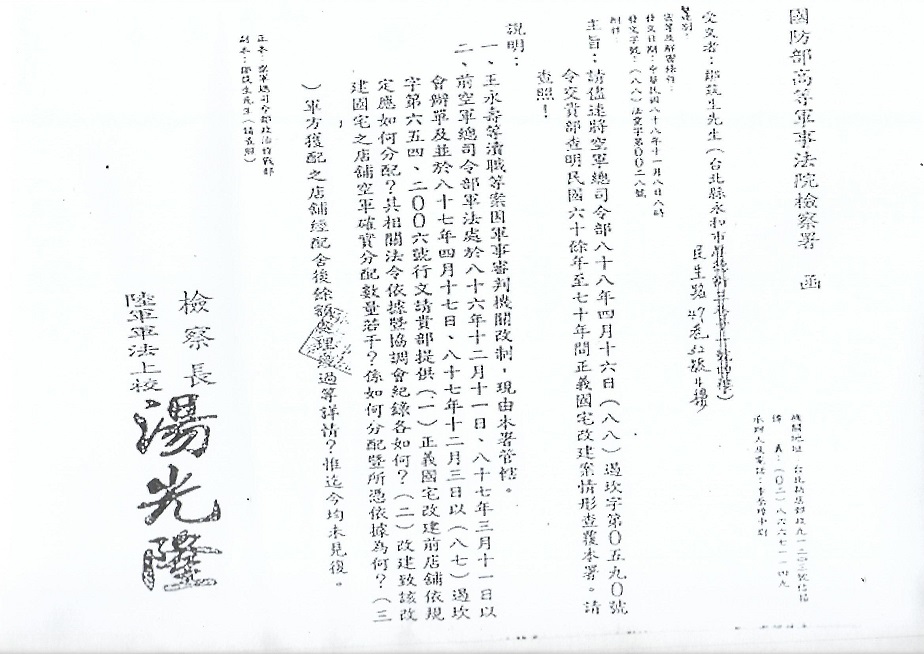 國防部高等軍事法院檢察署　函
機關地址：台北
傳　真：（０２）八六六七一一四九
承辦人及電話：
受文者：鄧筑生先生（台北縣永和市
民生路47巷32號4樓）
速別：
密等及解密條件：
發文日期：中華民國八十八年十一月八日八時
發文字號：（八八）法堂字第００二八號
附件：
主旨：請儘速將空軍總司令部八十八年四月十六日（八八）過坎字第０五九０號
令交貴部查明民國六十餘年至七十年間正義國宅改建案情形查覆本署。請
查照！
說明：
一、王永壽等瀆職等案因軍事審判機關改制，現由本署管轄。
二、前空軍總司令部軍法處於八十六年十二月十一日、八十七年三月十一日以
會辦單及並於八十七年四月十七日、八十七年十二月三日以（八七）過坎
字第六五四、二００六號行文請貴部提供（一）正義國宅改建前店舖依規
定應如何分配？其相關法令依據暨協調會紀錄各如何？（二）改建致該改
建國宅之店舖空軍確實分配數量若干？係如何分配暨所憑依據為何？（三
）軍方獲配之店舖經配舍後餘額處理經過等詳情？惟迄今均未見復。
正本：空軍總司令部政治作戰部
副本：鄧筑生先生（請查照）
檢察長
陸軍軍法上校
湯光隆